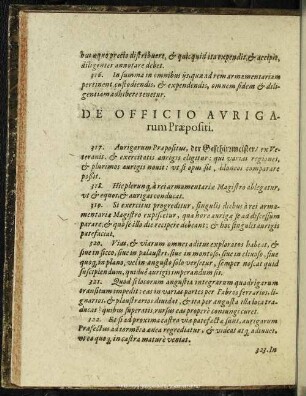 bus æquo precio distribuere, & quicquid ita expendit, & accipit,
diligenter annotare debet.
316. In summa in omnibus ijs quæ ad rem armamentariam
pertinent, custodiendis, & expendendis, omnem fidem & dili-
gentiam adhibere tenetur.
DE OFFICIO AVRIGA-
rum Præpositi.
317. Aurigarum Præpositus, der Geschirrmeister/ ex Ve-
teranis, & exercitatis aurigis eligitur: qui varias regiones,
& plurimos aurigis novit: vt si opus sit, idoneos comparare
possit.
318. Hic plerunq; à rei armamentariæ Magistro obligatur,
vt & equos, & aurigas conducat.
319. Si exercitus progreditur, singulis diebus à rei ar-
mentaria Magistro expiscetur, qua hora auriga se ad discessum
parare, & quò se illa die recipere debeant; & hoc singulis aurigis
patefaciat.
320. Vias, & viarum omnes aditus exploratos habeat, &
siue in sicco, siue in palustri, siue in montoso, siue in clinoso, siue
quoq; in plano, vel in angusto solo versetur, semper noscat quid
suscipiendum, quidue aurigis imperandum sit.
321. Quod si locorum angustia integrarum quadrigarum
transitum impedit: eas in varias partes per Fabros ferrarios, li-
gnarios, & plaustrarios diuidat, & ita per angusta illa loca tra-
ducat: quibus superatis, rursus eas properè coniungi curet.
322. Et si ad proxima castra via patefacta sunt, aurigarum
Præfectus ad tormēta auica regrediatur, & videat at q; adiuuet,
vt eo quoq; in castra maturè veniat.
323. In